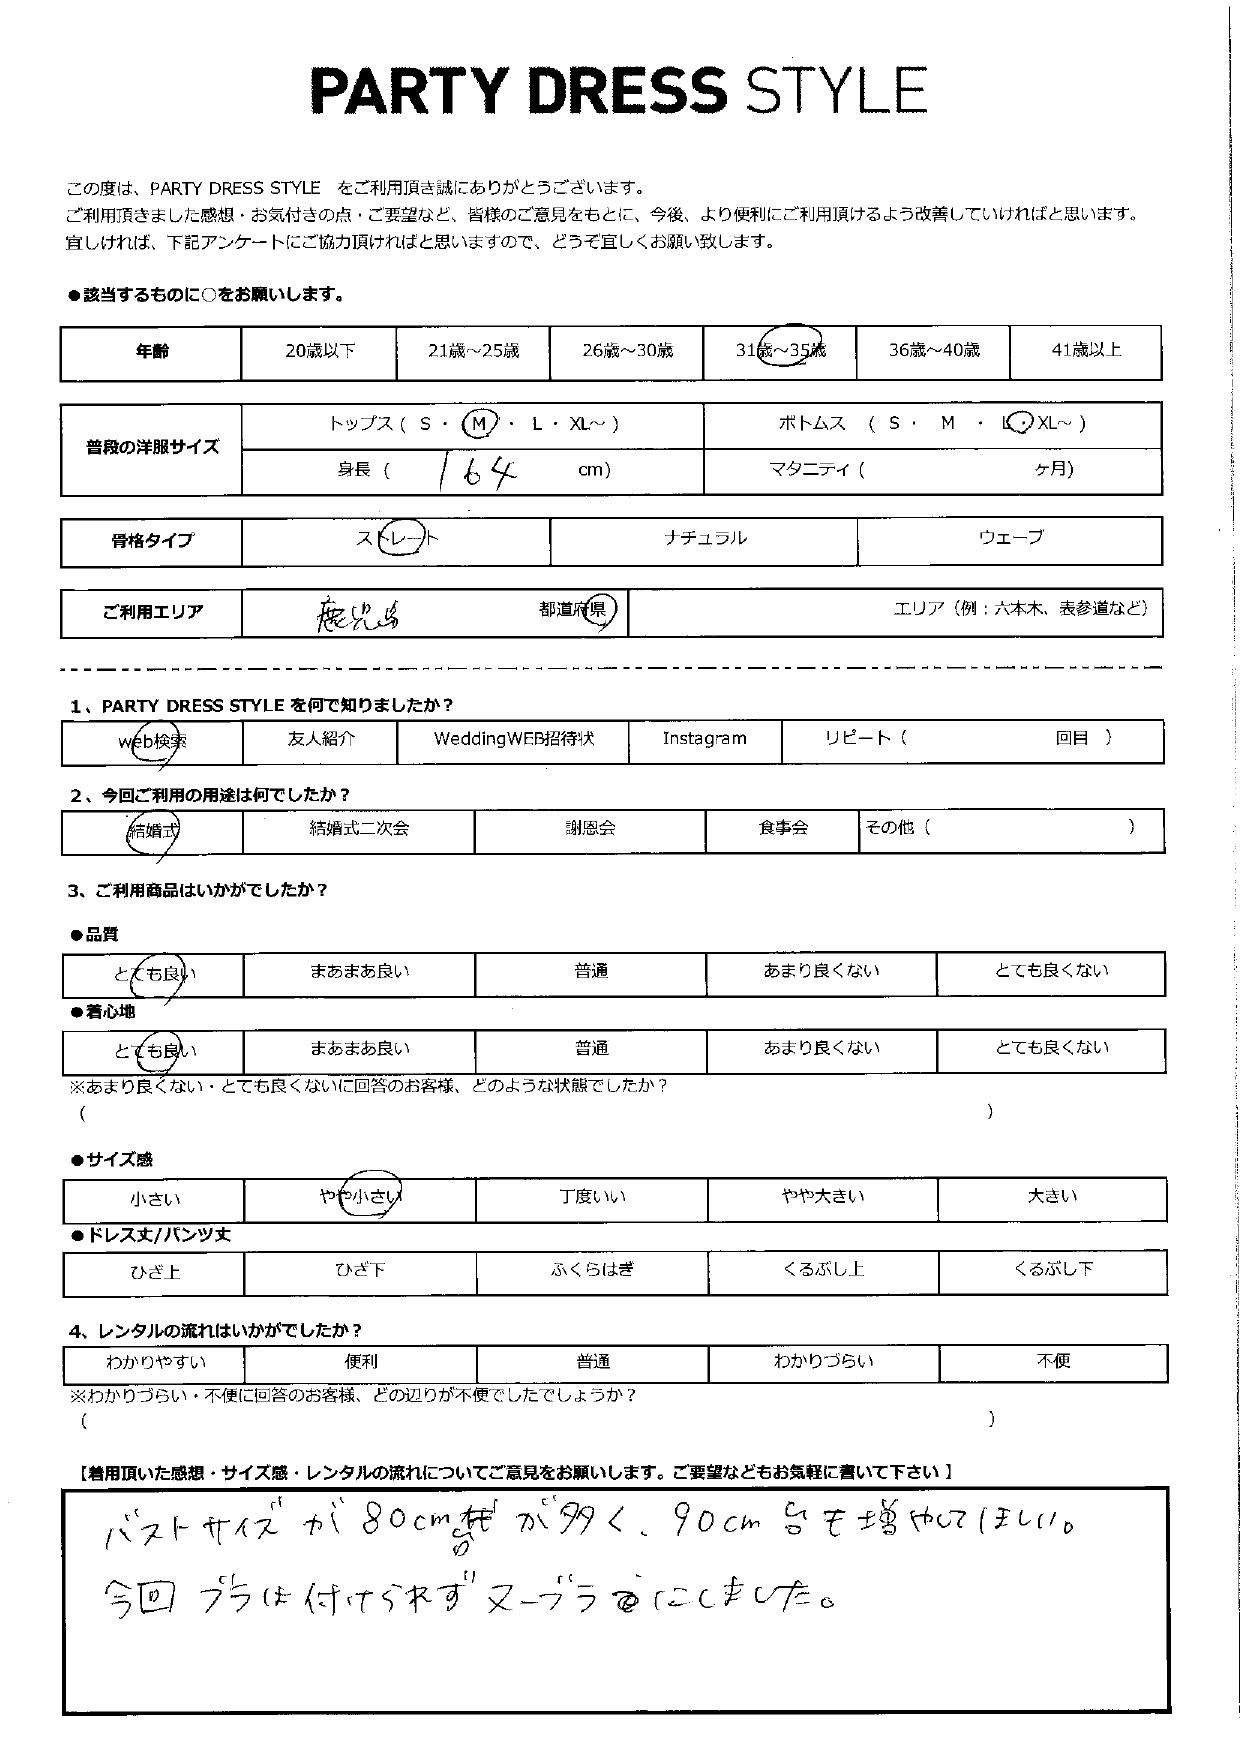 PARTY DRESS STYLE
この度は、PARTY DRESS STYLE をご利用頂き誠にありがとうございます。
ご利用頂きました感想・お気付きの点・ご要望など、皆様のご意見をもとに、今後、より便利にご利用頂けるよう改善していければと思います。
宜しければ、下記アンケートにご協力頂ければと思いますので、どうぞ宜しくお願い致します。
●該当するものに○をお願いします。
年齢 20歳以下 21歳～25歳 26歳～30歳 31歳～35歳 36歳～40歳 41歳以上
普段の洋服サイズ トップス ( S ・ M ・ L ・ XL～ ) ボトムス ( S ・ M ・ L ・ XL～ )
身長 ( 164 cm) マタニティ ( ヶ月)
骨格タイプ ストレート ナチュラル ウェーブ
ご利用エリア 鹿児島 都道府県 エリア（例：六本木、表参道など）
1、PARTY DRESS STYLE を何で知りましたか？
web検索 友人紹介 WeddingWEB招待状 Instagram リピート（ 回目 ）
2、今回ご利用の用途は何でしたか？
結婚式 結婚式二次会 謝恩会 食事会 その他（ ）
3、ご利用商品はいかがでしたか？
●品質
とても良い まあまあ良い 普通 あまり良くない とても良くない
●着心地
とても良い まあまあ良い 普通 あまり良くない とても良くない
※あまり良くない・とても良くないに回答のお客様、どのような状態でしたか？
( )
●サイズ感
小さい やや小さい 丁度いい やや大きい 大きい
●ドレス丈/パンツ丈
ひざ上 ひざ下 ふくらはぎ くるぶし上 くるぶし下
4、レンタルの流れはいかがでしたか？
わかりやすい 便利 普通 わかりづらい 不便
※わかりづらい・不便に回答のお客様、どの辺りが不便でしたでしょうか？
( )
【着用頂いた感想・サイズ感・レンタルの流れについてご意見をお願いします。ご要望などもお気軽に書いて下さい】
バストサイズが80cm台が多く、90cm台も増やしてほしい。
今回ブラは付けられずヌーブラにしました。